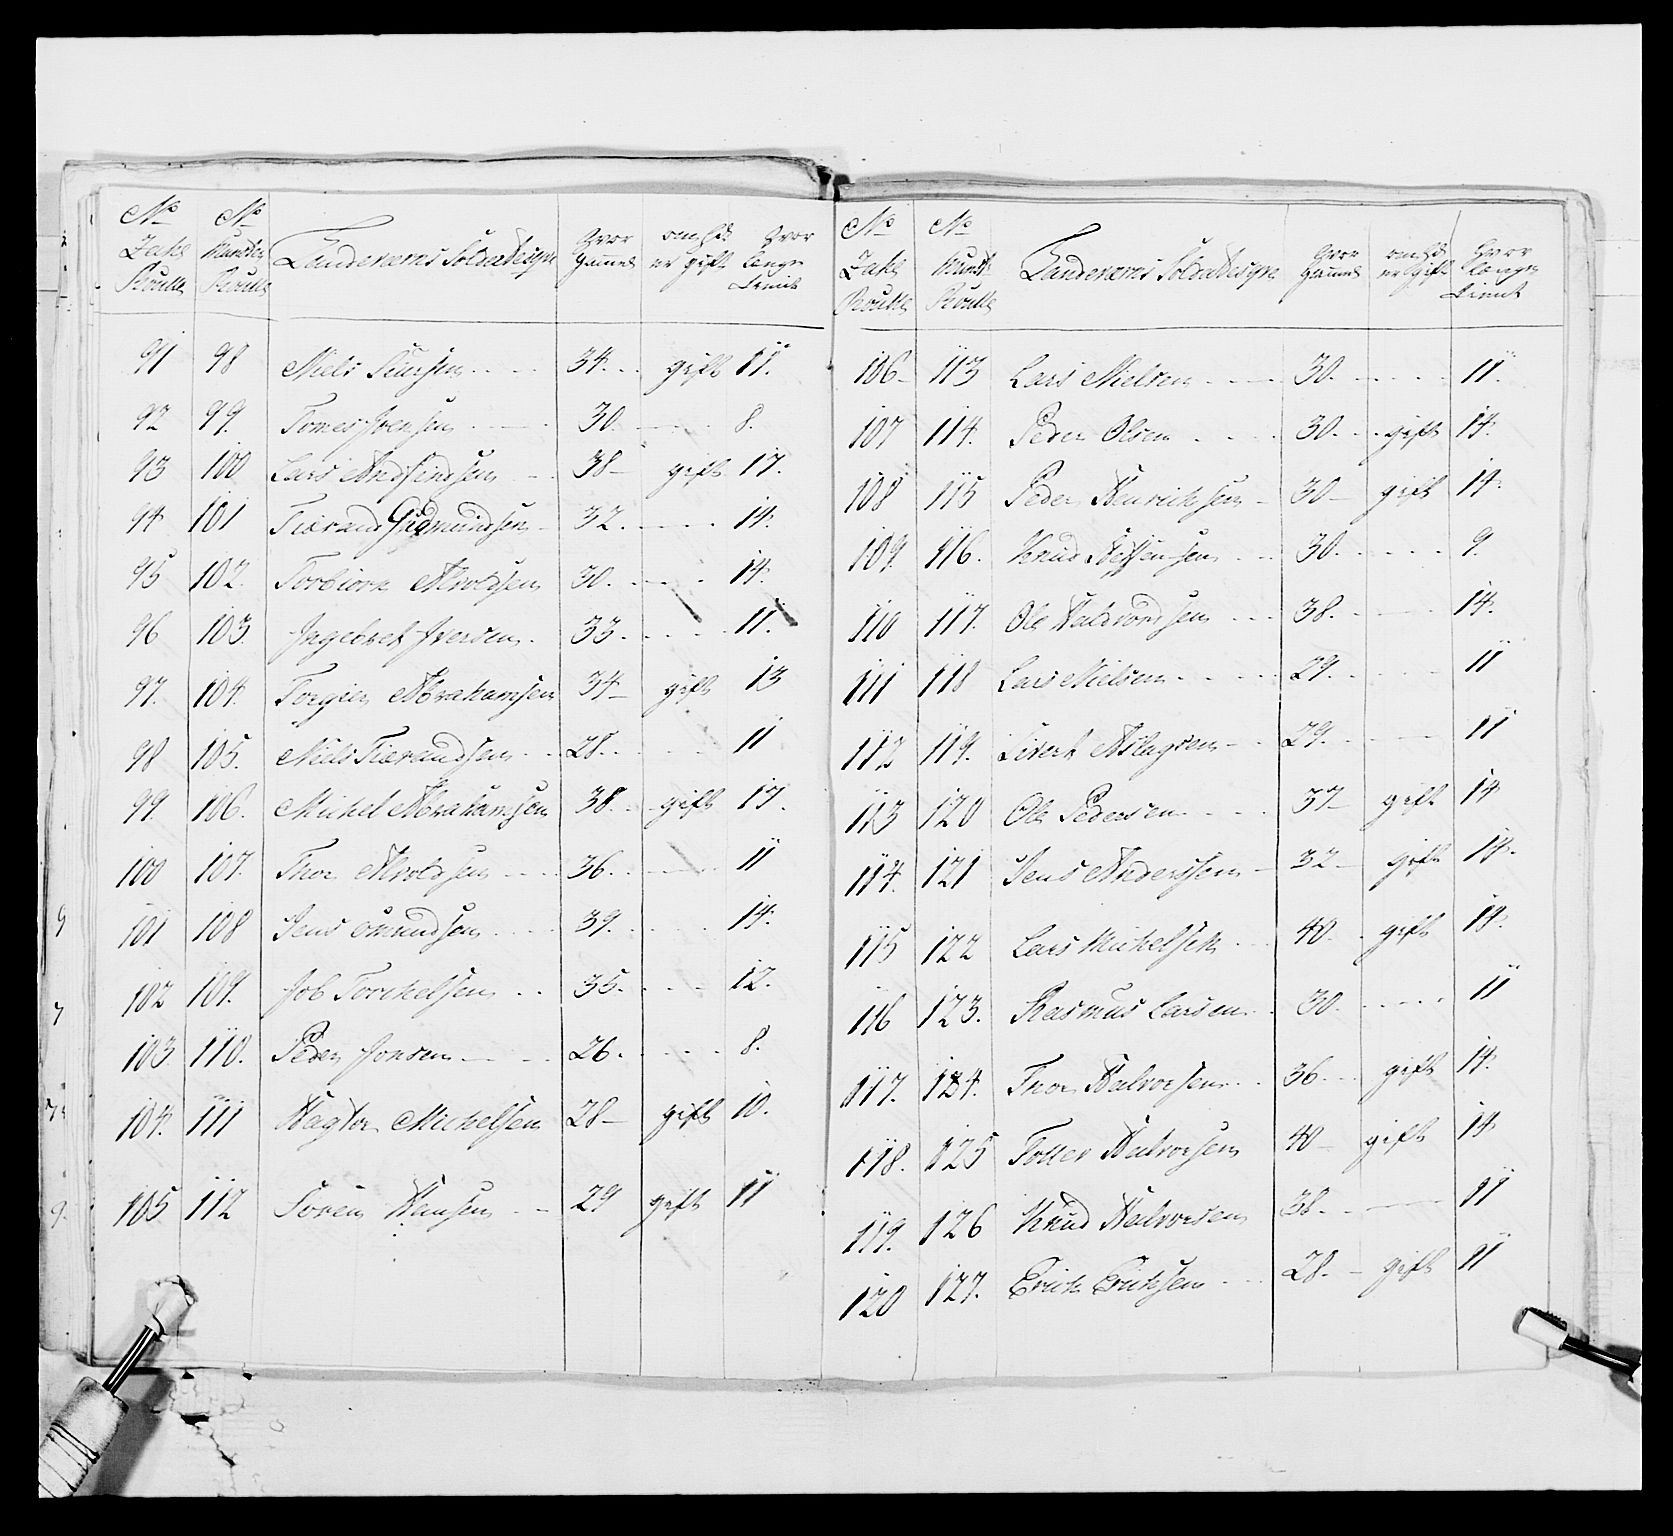 No No
Zahl Mundr Landeværns Soldatesqve Hvor om hd Hvor
Roulle Roulle Gammel er gift længe tient
91 98 Niels Siursen 34. gift 11.
92 99. Tomes Joensen 30. 8.
93 100 Lars Andfindsen 38 gift 17.
94 101 Tierand Gudmundsen 32. 14.
95 102. Torbiørn Alvoldsen 30. 14.
96 103. Ingebret Iversen. 33. 11.
97. 104. Torgier Abrahamsen 34 gift 13
98 105. Niels Tierandsen 28. 11
99. 106. Michel Abrahamsen 38. gift 17.
100 107. Thor Alvoldsen 36. 11
101 108 Jens omundsen 39. 14.
102 109. Job Torckelsen 35. 12.
103. 110. Peder Jonsen 26. 8.
104. 111 Hagtor Michelsen 28 gift 10.
105 112 Søren Hansen 29 gift 11
No No
Zahl Mundr Landeværns Soldatesqve Hvor om hd Hvor
Roulle Roulle Gammel er gift længe tient
106 113 Lars Nielsen 30. 11.
107 114. Peder Olsen 30. gift 14.
108 115 Peder Henrichsen 30 gift 14.
109. 116. Knud 30. 9.
110 117. Ole Halvorsen 38. 14.
111 118 Lars Nielsen 29. 11
112 119. Sivert Aslagsen 29. 11
113 120 Ole Pedersen 37 gift 14
114. 121 Jens Anderssen 32 gift 14.
115 122 Lars Michelsen 40. gift 14.
116 123. Rasmus Larsen 30. 11
117. 124. Thor Halvorsen 36. gift 14.
118. 125 Tollev Halvorsen 40 gift 14
119. 126 Knud Halvorsen 38. 11
120 127. Erich Erichsen 28. gift 11